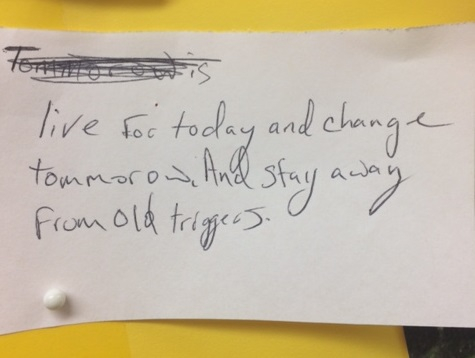 Tommorow is
live For today and change
tommorow. And stay away
From old triggers.